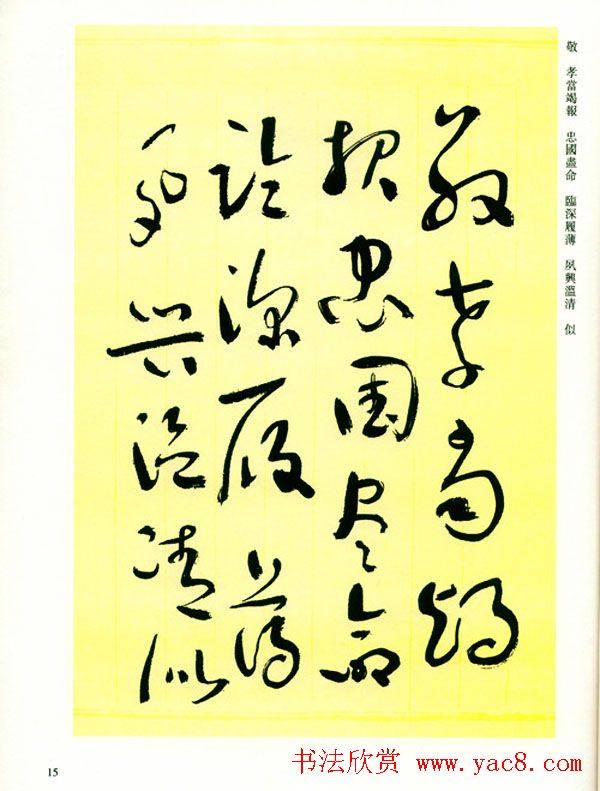 敬 孝當竭報 忠國盡命 臨深履薄 夙興溫清 似
敬孝當竭
報忠國盡命
臨深履薄
夙興溫清似
15
书法欣赏 www.yac8.com